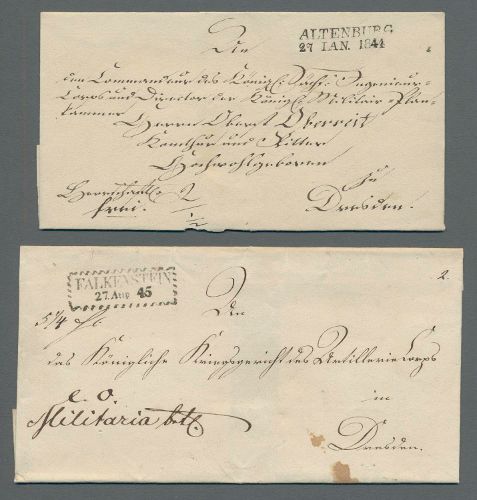 ALTENBURG
27 IAN. 1844
An
den Commandeur des Königl: Sächs: Ingenieur-
Corps und Director der Königl: Militair-Plan-
kammer
Herrn Oberst Oberreit
Comthur und Ritter
Hochwohlgeboren
zu
frei.
Dresden.
FALKENSTEIN
27. Aug 45
2.
5 1/4
An
das Königliche Kriegsgericht des Artillerie Corps
in
Militaria
Dresden.